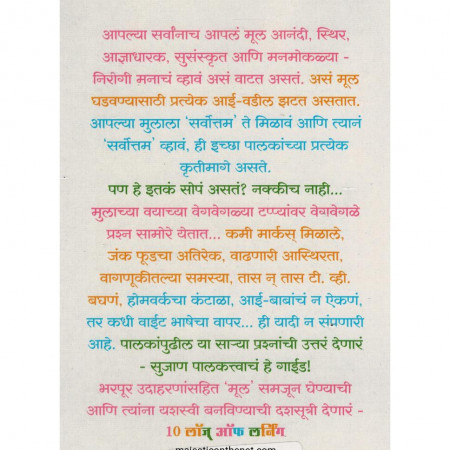 आपल्या सर्वांनाच आपलं मूल आनंदी, स्थिर,
आज्ञाधारक, सुसंस्कृत आणि मनमोकळ्या -
निरोगी मनाचं व्हावं असं वाटत असतं. असं मूल
घडवण्यासाठी प्रत्येक आई-वडील झटत असतात.
आपल्या मुलाला ‘सर्वोत्तम’ ते मिळावं आणि त्यानं
‘सर्वोत्तम’ व्हावं, ही इच्छा पालकांच्या प्रत्येक
कृतीमागे असते.
पण हे इतकं सोपं असतं? नक्कीच नाही...
मुलाच्या वयाच्या वेगवेगळ्या टप्प्यांवर वेगवेगळे
प्रश्न सामोरे येतात... कमी मार्कस् मिळाले,
जंक फूडचा अतिरेक, वाढणारी आस्थिरता,
वागणूकीतल्या समस्या, तास न् तास टी. व्ही.
बघणं, होमवर्कचा कंटाळा, आई-बाबांचं न ऐकणं,
तर कधी वाईट भाषेचा वापर... ही यादी न संपणारी
आहे. पालकांपुढील या साऱ्या प्रश्नांची उत्तरं देणारं
- सुजाण पालकत्त्वाचं हे गाईड!
भरपूर उदाहरणांसहित ‘मूल’ समजून घेण्याची
आणि त्यांना यशस्वी बनविण्याची दशसूत्री देणारं -
10 लॉज् ऑफ लर्निंग